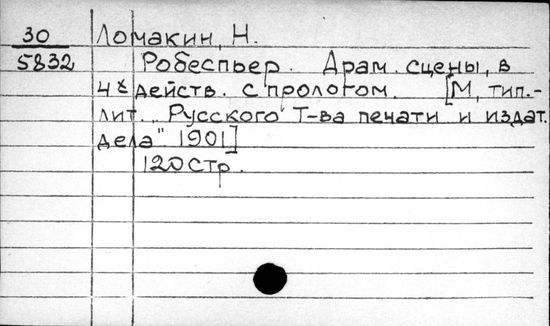 30 Ломакин, Н.
5832 Робеспьер. Драм. сцены, в
4х действ. с прологом. [М, тип.-
лит. „Русского Т-ва печати и издат.
дела" 1901]
120 стр.